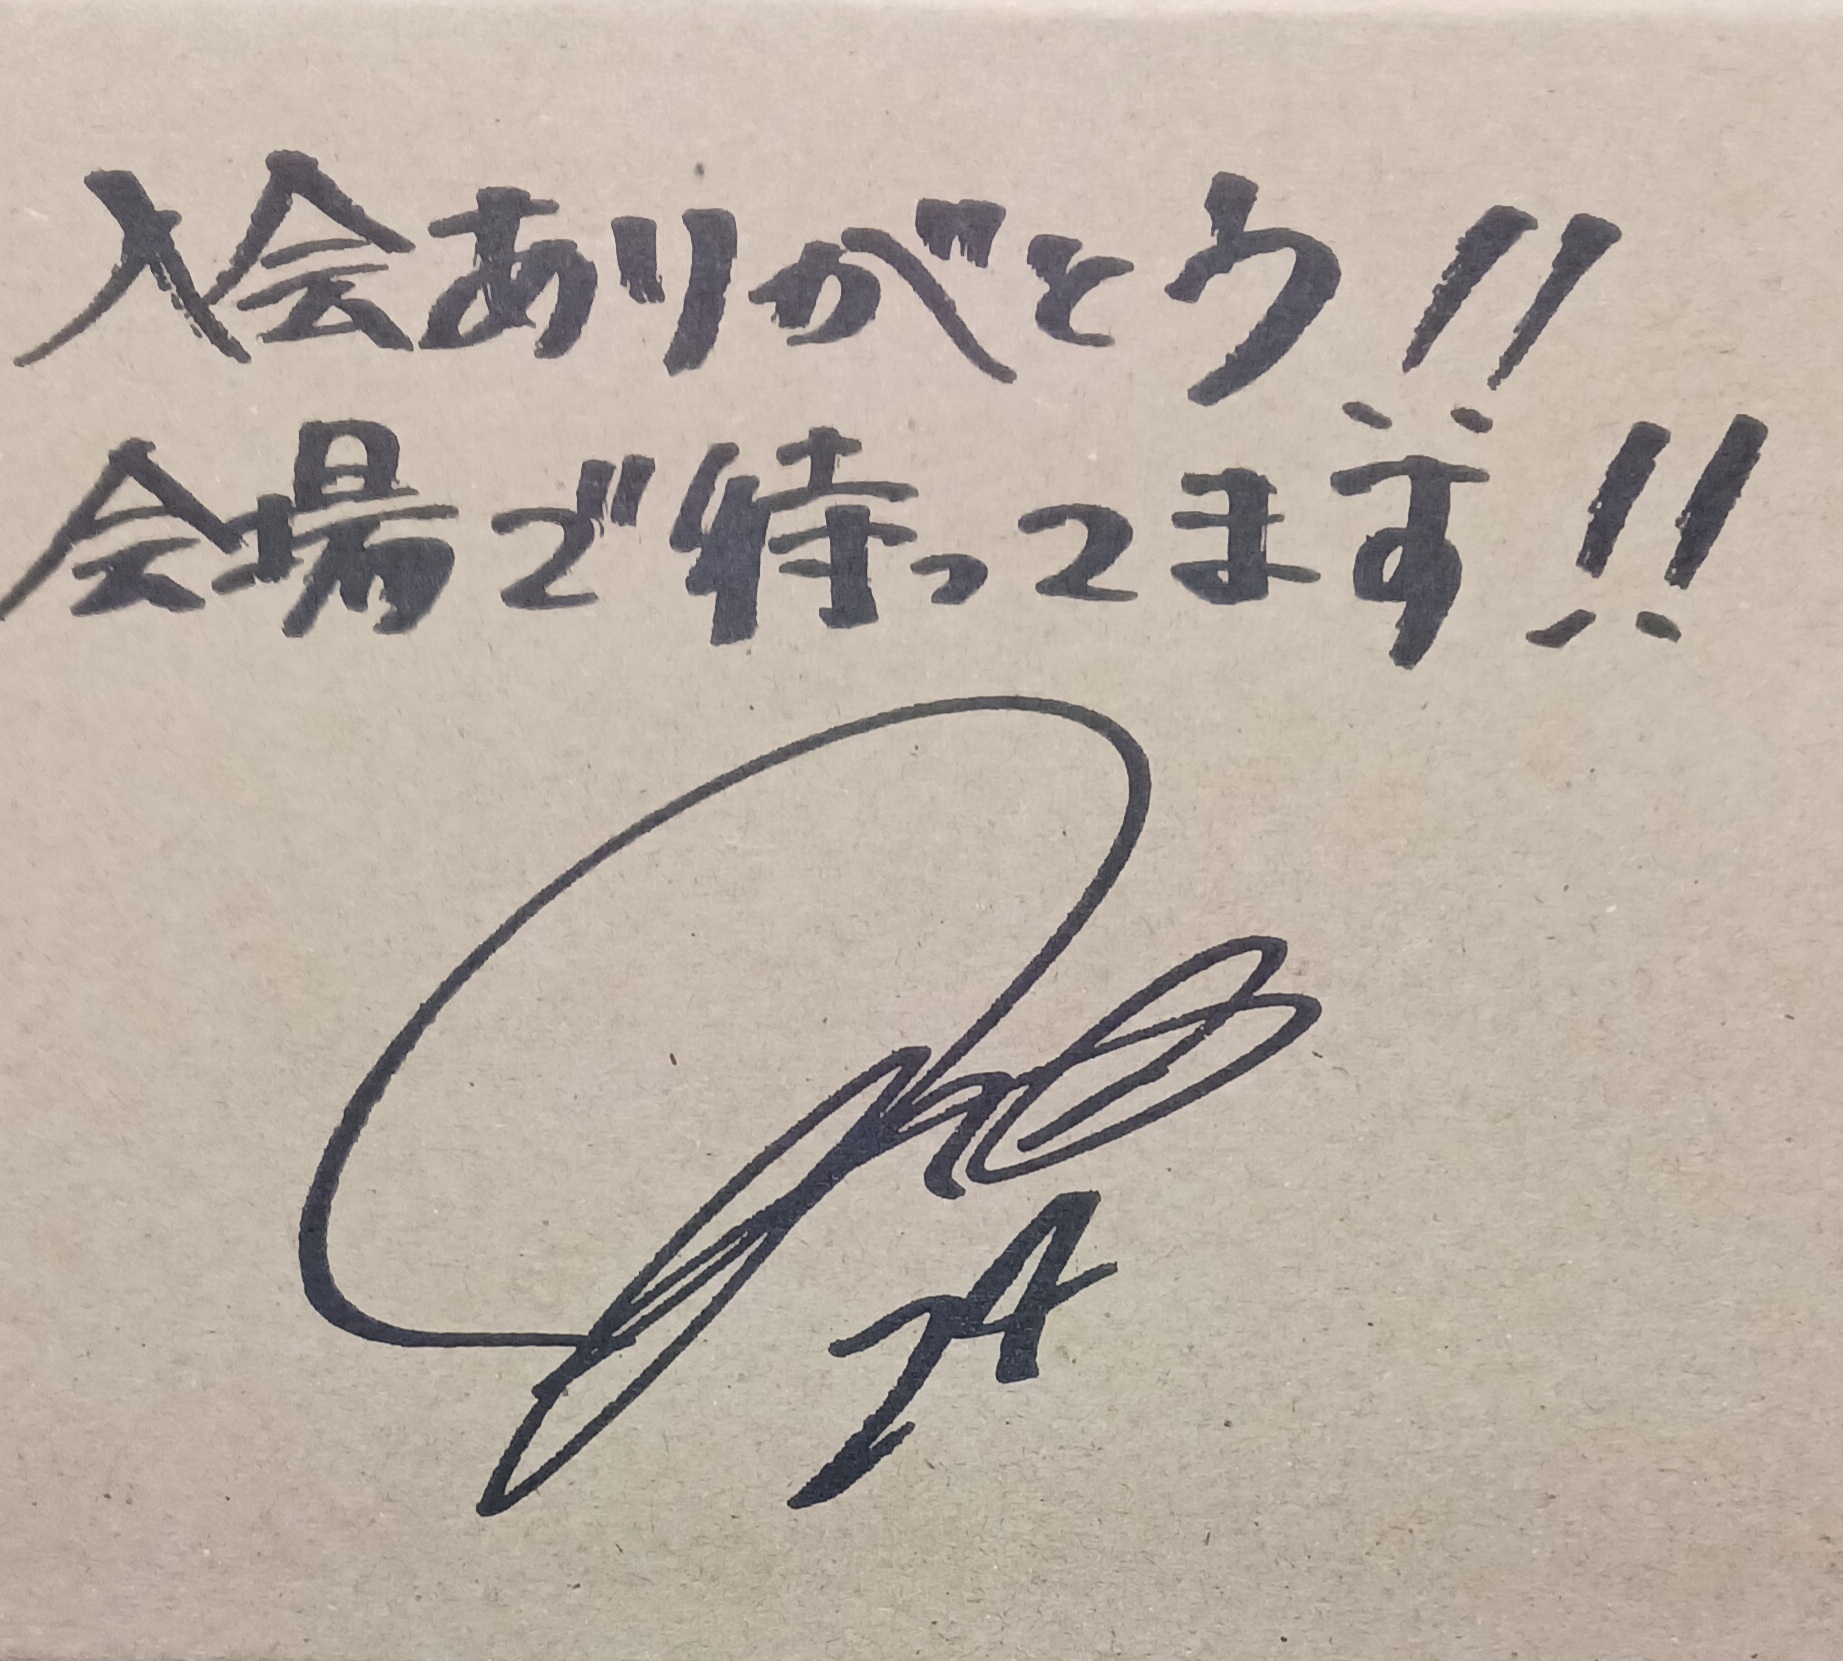 入会ありがとう!!
会場で待ってます!!